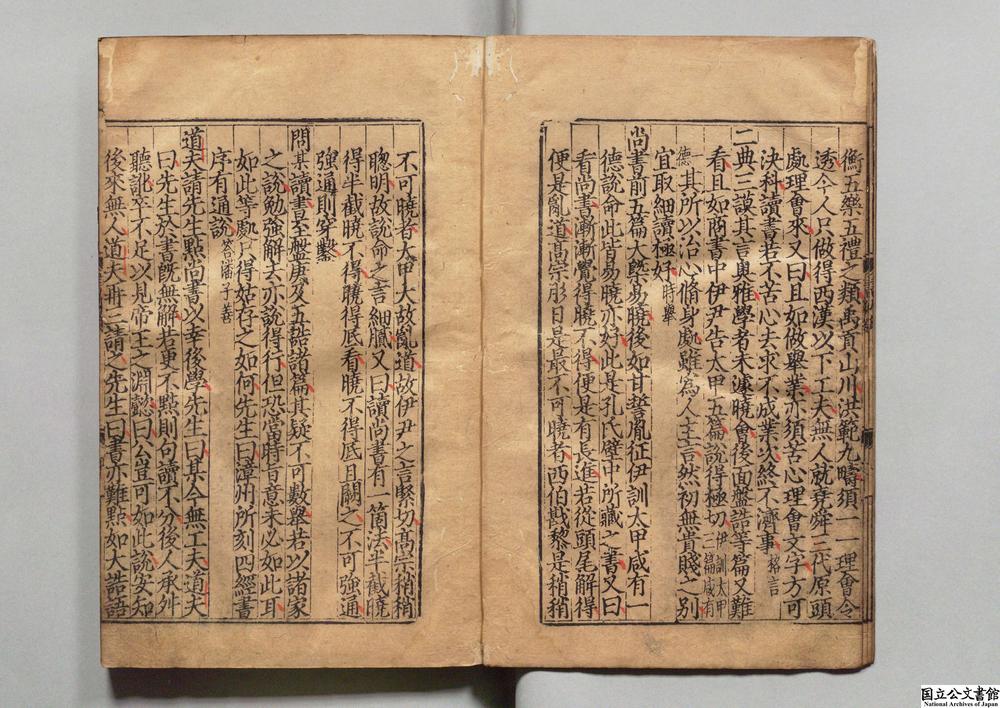 衡五樂五禮之類禹貢山川洪範九疇須一一理會令
透今人只做得西漢以下工夫無人就堯舜三代原頭
處理會來又曰且如做舉業亦須苦心理會文字方可
決科讀書若不苦心去求不成業次終不濟事格言
二典三謨其言奧雅學者未遽曉會後面盤誥等篇又難
看且如商書中伊尹告太甲五篇說得極切伊訓太甲三篇咸有一
德其所以治心脩身處雖爲人主言然初無貴賤之別
宜取細讀極好時舉
尚書前五篇大槩易曉後如甘誓胤征伊訓太甲咸有一
德說命此皆易曉亦好此是孔氏壁中所藏之書又曰
看尚書漸漸覺得曉不得便是有長進若從頭尾解得
便是亂道高宗肜日是最不可曉者西伯戡黎是稍稍
不可曉者太甲大故亂道故伊尹之言緊切高宗稍稍
聰明故說命之言細膩又曰讀尚書有一箇法半截曉
得半截曉不得曉得底看曉不得底且闕之不可強通
強通則穿鑿
問某讀書至盤庚及五誥諸篇其疑不可數舉若以諸家
之說勉強解去亦說得行但恐當時旨意未必如此耳
如此等處只得姑存之如何先生曰漳州所刻四經書
序有通說答潘子善
道夫請先生點尚書以幸後學先生曰某今無工夫道夫
曰先生於書旣無解若更不點則句讀不分後人承舛
聽訛卒不足以見帝王之淵懿曰公豈可如此說安知
後來無人道夫再三請之先生曰書亦難點如大誥語
国立公文書館
National Archives of Japan